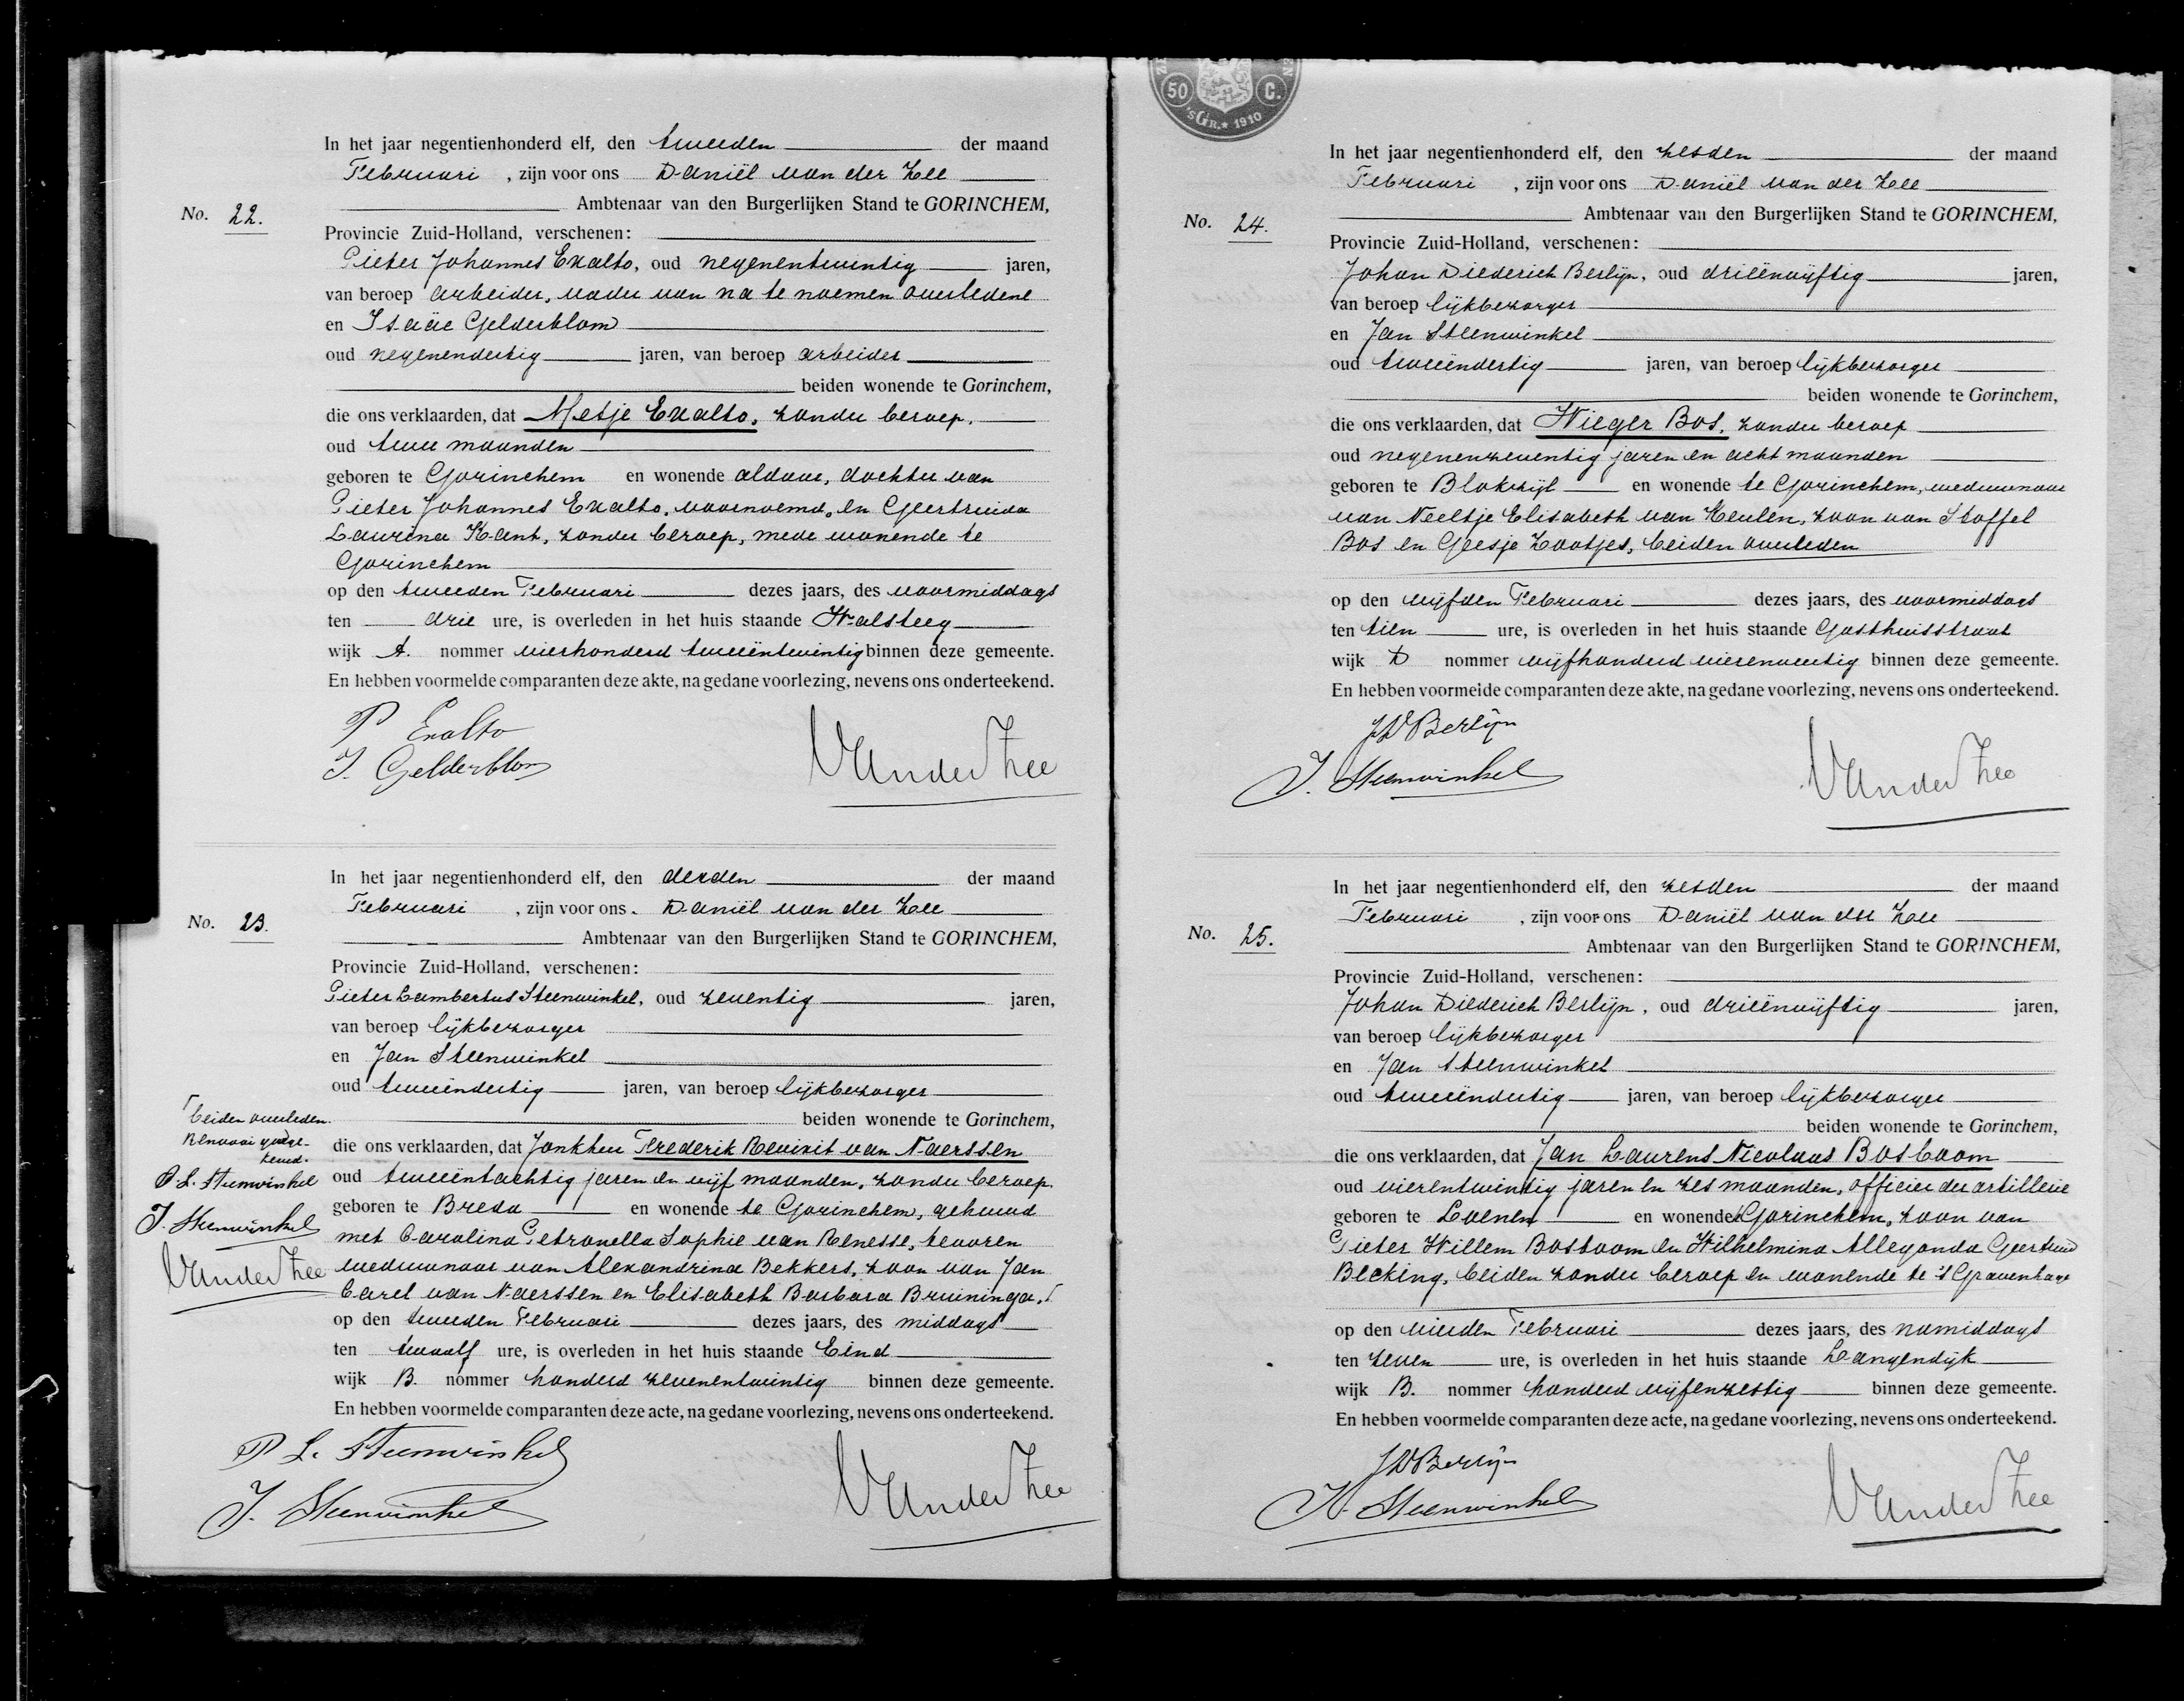 No. 22.
In het jaar negentienhonderd elf, den tweeden der maand
Februari, zijn voor ons Daniël van der Zee
Ambtenaar van den Burgerlijken Stand te GORINCHEM,
Provincie Zuid-Holland, verschenen:
Pieter Johannes Exalto, oud negenentwintig jaren,
van beroep arbeider, vader van na te noemen overledene
en Isaäc Gelderblom
oud negenendertig jaren, van beroep arbeider
beiden wonende te Gorinchem,
die ons verklaarden, dat Metje Exalto, zonder beroep,
oud twee maanden
geboren te Gorinchem en wonende aldaar, dochter van
Pieter Johannes Exalto, voornoemd, en Geertruida
Laurina Kant, zonder beroep, mede wonende te
Gorinchem
op den tweeden Februari dezes jaars, des voormiddags
ten drie ure, is overleden in het huis staande Walsteeg
wijk A. nommer vierhonderd tweeëntwintig binnen deze gemeente.
En hebben voormelde comparanten deze akte, na gedane voorlezing, nevens ons onderteekend.
P Exalto
I. Gelderblom
VanderZee
No. 23.
In het jaar negentienhonderd elf, den derden der maand
Februari, zijn voor ons. Daniël van der Zee
Ambtenaar van den Burgerlijken Stand te GORINCHEM,
Provincie Zuid-Holland, verschenen:
Pieter Lambertus Steenwinkel, oud zeventig jaren,
van beroep lijkbezorger
en Jan Steenwinkel
oud tweeëndertig jaren, van beroep lijkbezorger
beiden wonende te Gorinchem,
die ons verklaarden, dat Jonkheer Frederik Revixit van Naerssen
oud tweeëntachtig jaren en vijf maanden, zonder beroep
geboren te Breda en wonende te Gorinchem, gehuwd
met Carolina Petronella Sophie van Renesse, tevoren
weduwnaar van Alexandrina Bekkers, zoon van Jan
Carel van Naerssen en Elisabeth Barbara Bruininga,
op den tweeden Februari dezes jaars, des middags
ten twaalf ure, is overleden in het huis staande Eind
wijk B. nommer honderd zevenentwintig binnen deze gemeente.
En hebben voormelde comparanten deze acte, na gedane voorlezing, nevens ons onderteekend.
P L. Steenwinkel
J. Steenwinkel
VanderZee
beiden overleden.
Renvooi goedge-
keurd.
P. L. Steenwinkel
J. Steenwinkel
VanderZee
50 C.
'sGR. * 1910
No. 24.
In het jaar negentienhonderd elf, den zesden der maand
Februari, zijn voor ons Daniël van der Zee
Ambtenaar van den Burgerlijken Stand te GORINCHEM,
Provincie Zuid-Holland, verschenen:
Johan Diederich Berlijn, oud drieënvijftig jaren,
van beroep lijkbezorger
en Jan Steenwinkel
oud tweeëndertig jaren, van beroep lijkbezorger
beiden wonende te Gorinchem,
die ons verklaarden, dat Wieger Bos, zonder beroep
oud negenenzeventig jaren en acht maanden
geboren te Blokzijl en wonende te Gorinchem, weduwnaar
van Neeltje Elisabeth van Heulen, zoon van Stoffel
Bos en Geesje Lootjes, beiden overleden
op den vijfden Februari dezes jaars, des voormiddags
ten tien ure, is overleden in het huis staande Gasthuisstraat
wijk D nommer vijfhonderd vierenveertig binnen deze gemeente.
En hebben voormelde comparanten deze akte, na gedane voorlezing, nevens ons onderteekend.
JDBerlijn
J. Steenwinkel
VanderZee
No. 25.
In het jaar negentienhonderd elf, den zesden der maand
Februari, zijn voor ons Daniël van der Zee
Ambtenaar van den Burgerlijken Stand te GORINCHEM,
Provincie Zuid-Holland, verschenen:
Johan Diederich Berlijn, oud drieënvijftig jaren,
van beroep lijkbezorger
en Jan Steenwinkel
oud tweeëndertig jaren, van beroep lijkbezorger
beiden wonende te Gorinchem,
die ons verklaarden, dat Jan Laurens Nicolaas Bosboom
oud vierentwintig jaren en zes maanden, officier der artillerie
geboren te Loenen en wonende Gorinchem, zoon van
Pieter Willem Bosboom en Wilhelmina Allegonda Geertruid
Becking, beiden zonder beroep en wonende te 's Gravenhage
op den vierden Februari dezes jaars, des namiddags
ten zeven ure, is overleden in het huis staande Langendijk
wijk B. nommer honderd vijfenzestig binnen deze gemeente.
En hebben voormelde comparanten deze acte, na gedane voorlezing, nevens ons onderteekend.
JDBerlijn
J. Steenwinkel
VanderZee